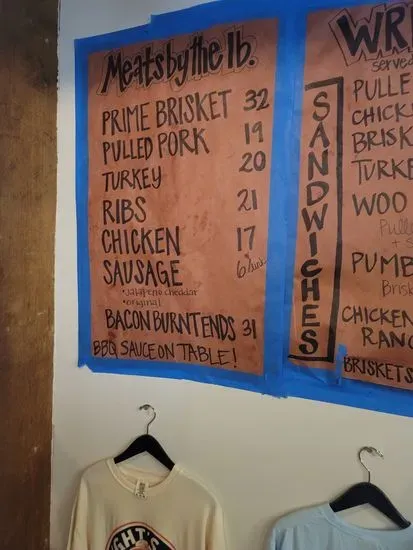 Meats by the lb.
PRIME BRISKET 32
PULLED PORK 19
TURKEY 20
RIBS 21
CHICKEN 17
SAUSAGE
• Jalapeno cheddar
• original
BACON BURNT ENDS 31
BBQ SAUCE ON TABLE!
WR
serve
SANDWICHES
PULLE
CHICK
BRISK
TURKE
WOO
Pull
+
PUMB
Brisk
CHICKEN
RANC
BRISKETS
GHT'S